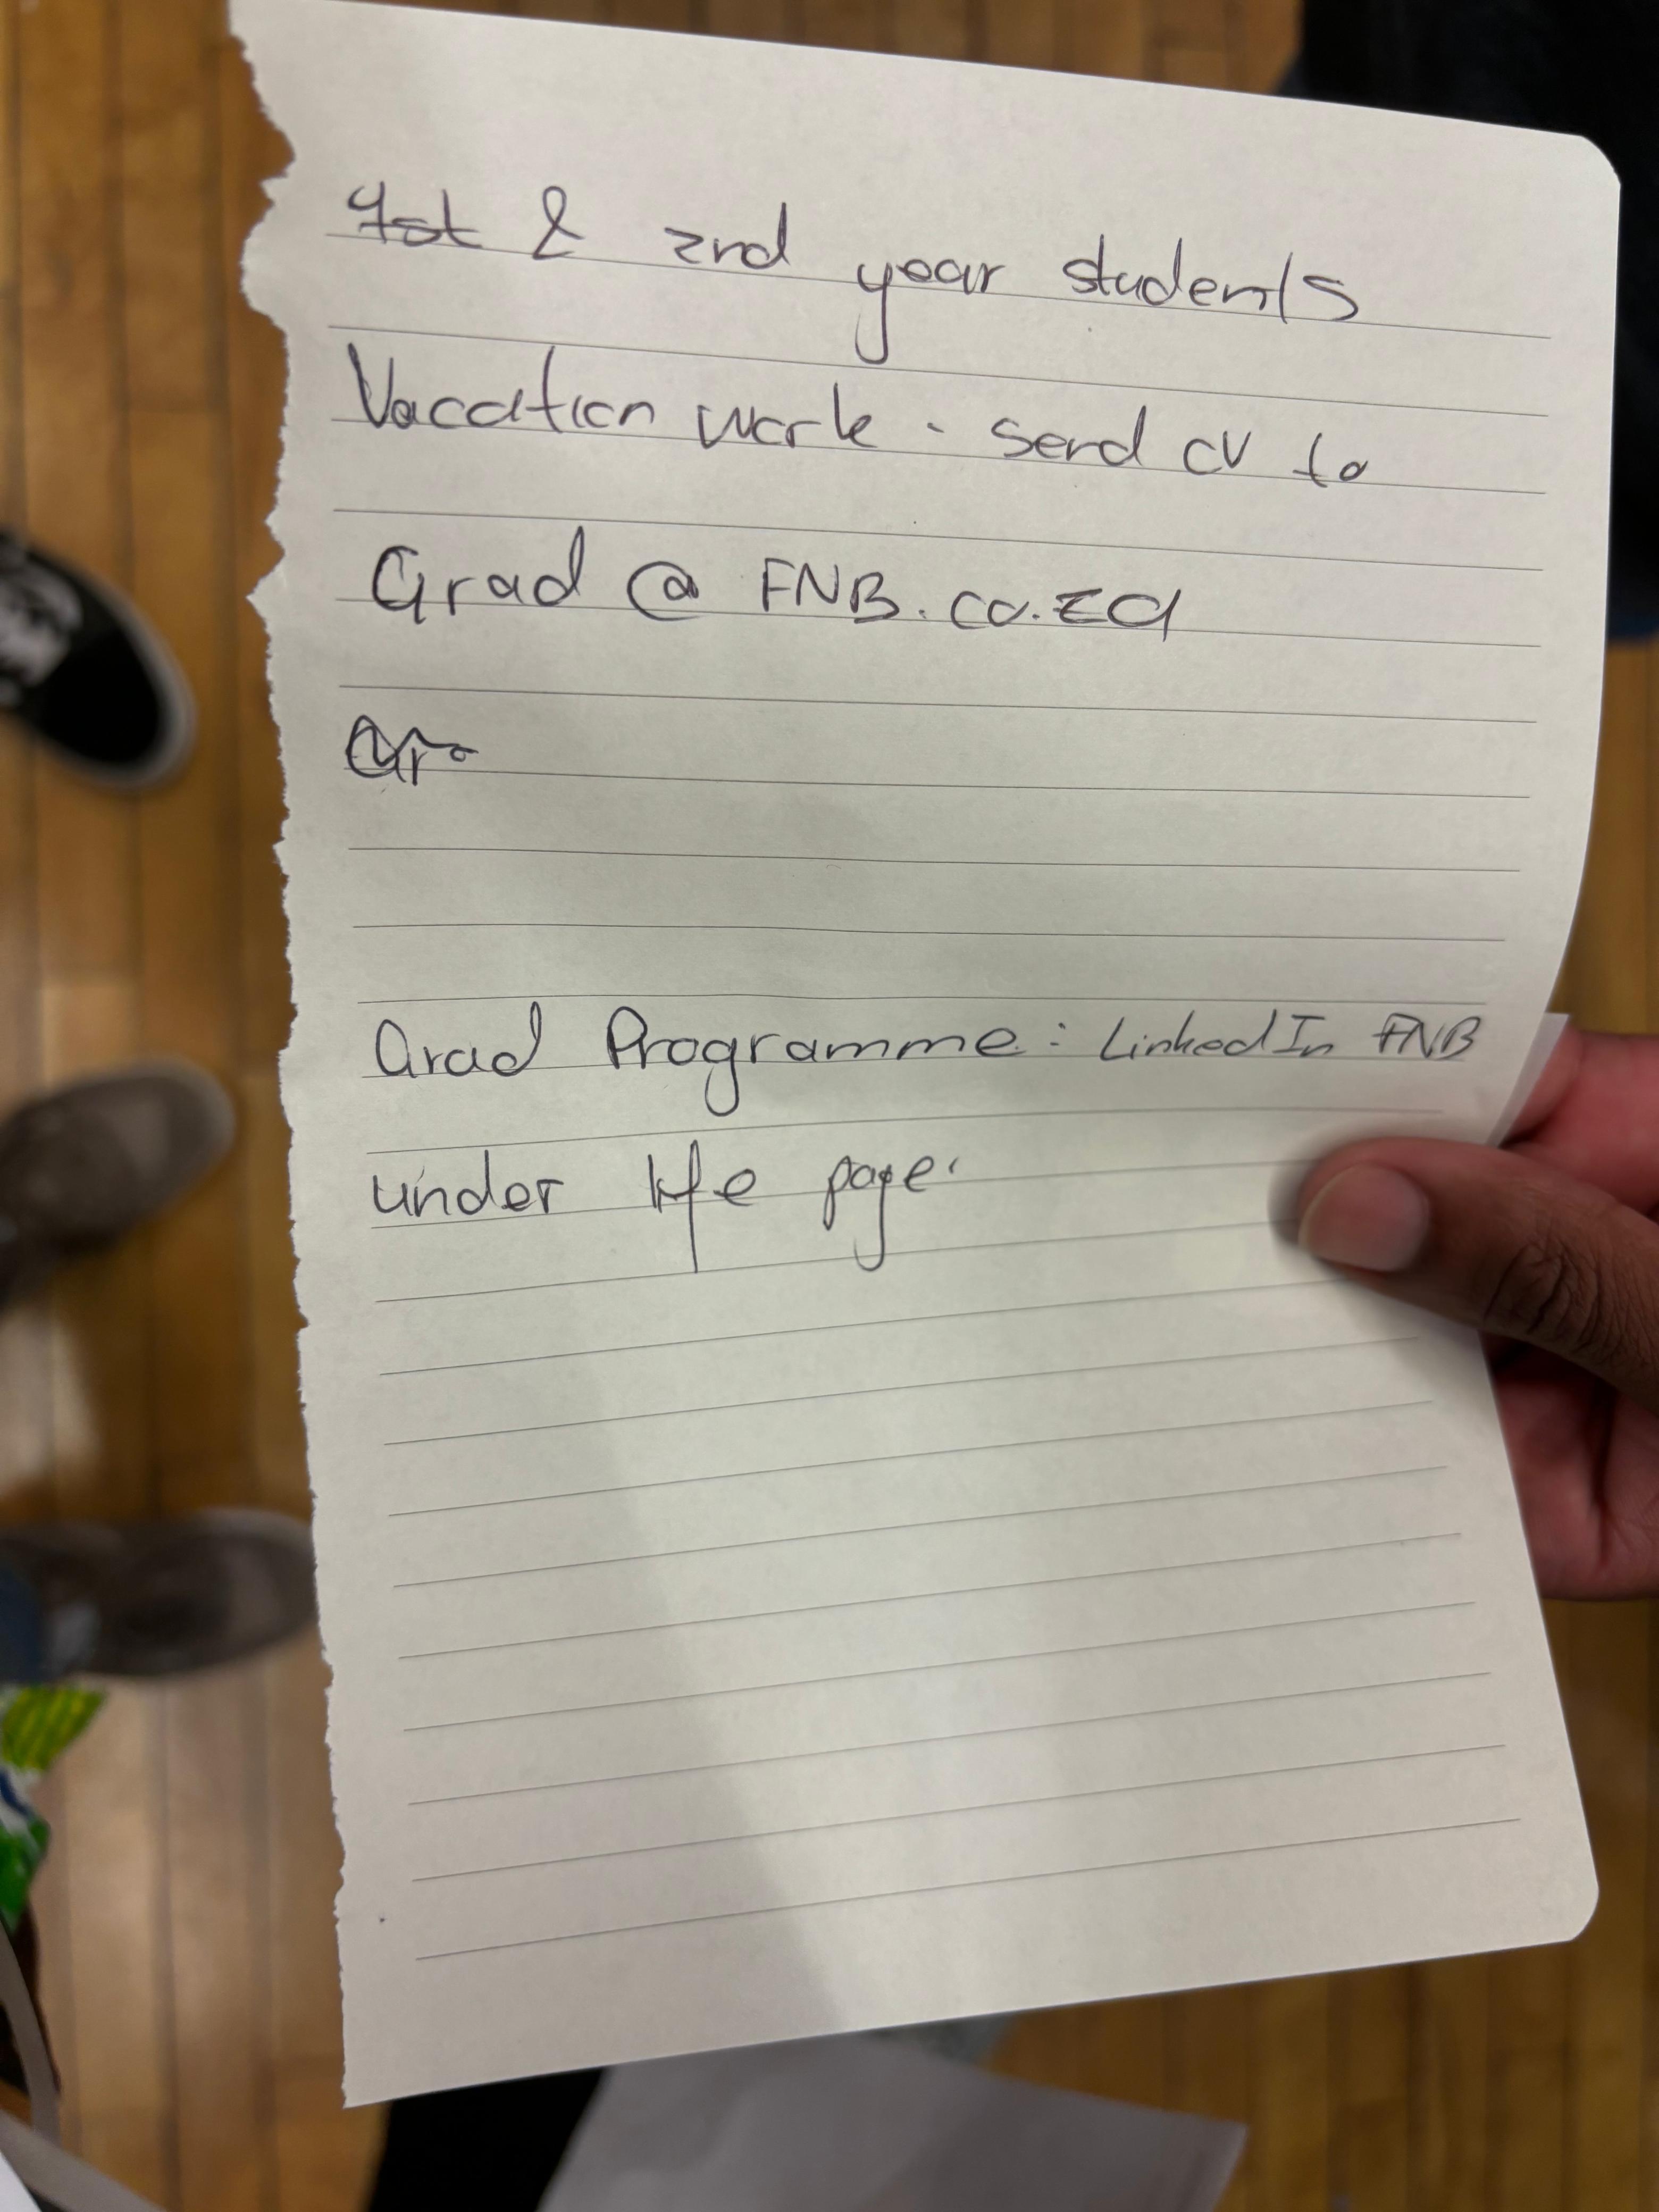 1st & 2nd year students
Vacation work - send CV to
Grad @ FNB.co.za
Gra
Grad Programme: LinkedIn FNB
under life page.